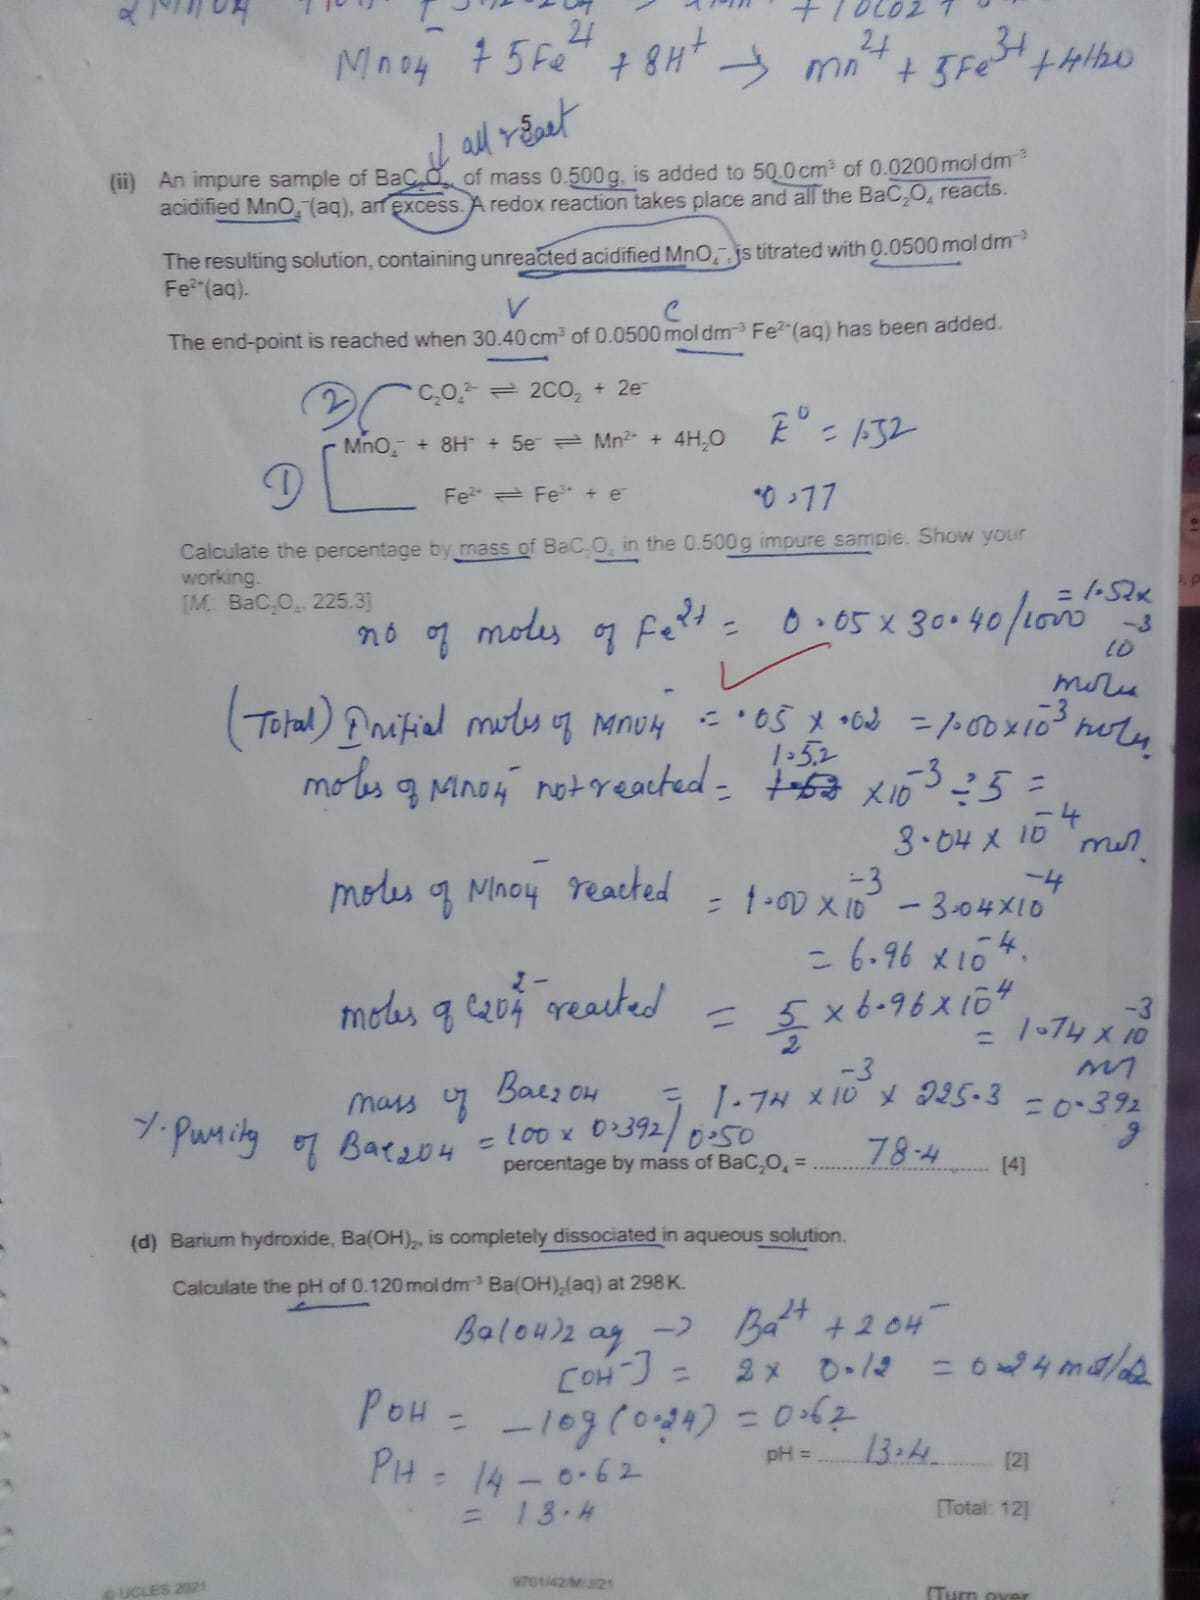 MnO4⁻ + 5Fe²⁺ + 8H⁺ → Mn²⁺ + 5Fe³⁺ + 4H2O
5
↓ all react
(ii) An impure sample of BaC₂O₄, of mass 0.500 g, is added to 50.0 cm³ of 0.0200 mol dm⁻³
acidified MnO₄⁻(aq), an excess. A redox reaction takes place and all the BaC₂O₄ reacts.
The resulting solution, containing unreacted acidified MnO₄⁻, is titrated with 0.0500 mol dm⁻³
Fe²⁺(aq).
V C
The end-point is reached when 30.40 cm³ of 0.0500 mol dm⁻³ Fe²⁺(aq) has been added.
② C₂O₄²⁻ ⇌ 2CO₂ + 2e⁻
MnO₄⁻ + 8H⁺ + 5e⁻ ⇌ Mn²⁺ + 4H₂O E⁰ = 1.52
① Fe²⁺ ⇌ Fe³⁺ + e⁻ 0.77
Calculate the percentage by mass of BaC₂O₄ in the 0.500 g impure sample. Show your
working.
[Mᵣ: BaC₂O₄, 225.3]
no of moles of Fe²⁺ = 0.05 x 30.40/1000 = 1.52x
10⁻³
moles
(Total) Initial moles of MnO4⁻ = .05 x .02 = 1.00x10⁻³ moles.
moles of MnO4⁻ not reacted = 1.52 x10⁻³ ÷ 5 =
3.04 x 10⁻⁴ mol.
moles of MnO4⁻ reacted = 1.00 x 10⁻³ - 3.04x10⁻⁴
= 6.96 x10⁻⁴.
moles of C2O4²⁻ reacted = 5/2 x 6.96x10⁻⁴
= 1.74 x 10⁻³
mol
mass of BaC2O4 = 1.74 x10⁻³ x 225.3 = 0.392
g
% Purity of BaC2O4 = 100 x 0.392/0.50
percentage by mass of BaC₂O₄ = 78.4 [4]
(d) Barium hydroxide, Ba(OH)₂, is completely dissociated in aqueous solution.
Calculate the pH of 0.120 mol dm⁻³ Ba(OH)₂(aq) at 298 K.
Ba(OH)2 aq → Ba²⁺ + 2OH⁻
[OH⁻] = 2 x 0.12 = 0.24
POH = -log(0.24) = 0.62
pH = 13.4 [2]
PH = 14 - 0.62
= 13.4
[Total: 12]
© UCLES 2021
9701/42/M/J/21
[Turn over